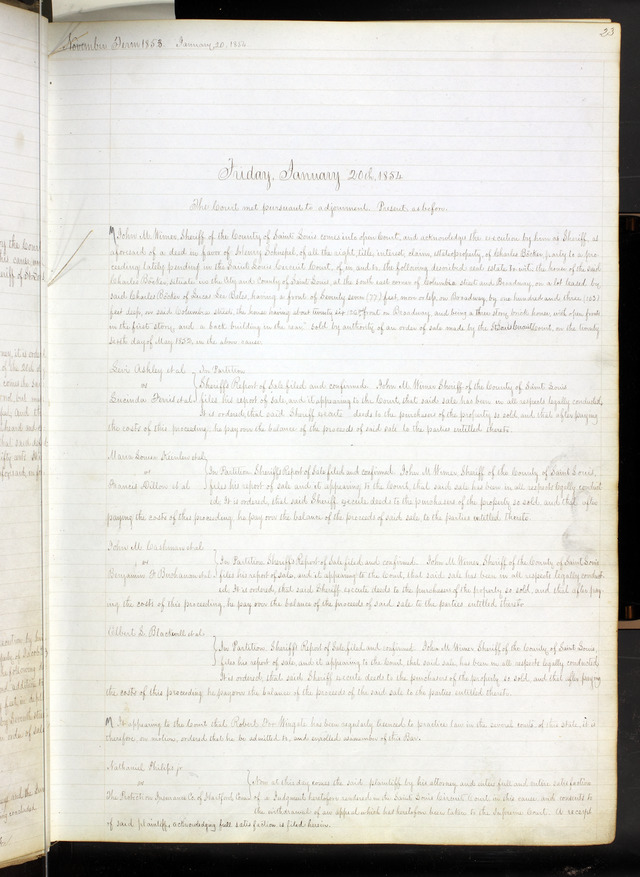 23
November Term 1853. January 20, 1854
Friday, January 20th, 1854
The Court met pursuant to adjournment. Present as before.
John M. Wimer, Sheriff of the County of Saint Louis comes into open Court, and acknowledges the execution by him as Sheriff as
aforesaid of a deed in favor of Henry Schnepel, of all the right, title, interest, claim, estate, property, of Charles Bösker, party to a pro-
ceeding lately pending in the Saint Louis Circuit Court, of in and to the following described real estate to wit: the house of the said
Charles Bösker, situate in the City and County of Saint Louis, at the south east corner of Columbia street and Broadway, on a lot leased by
said Charles Bösker of having a front of Seventy seven (77) feet, more or less, on Broadway, by one hundred and three (103)
feet deep, on said Columbia street, the house having about twenty six (26) front on Broadway, and being a three story brick house, with open front
in the first story, and a back building in the rear: sold by authority of an order of sale made by the St Louis Circuit Court, on the twenty
sixth day of May 1852, in the above cause.
Levi Ashley et al In Partition.
vs Sheriff's Report of Sale filed and confirmed. John M. Wimer Sheriff of the County of Saint Louis
Lucinda et al files his report of Sale, and it appearing to the Court, that said sale has been in all respects legally conducted,
It is ordered, that said Sheriff execute deeds to the purchasers of the property so sold and that after paying
the costs of this proceeding, he pay over the balance of the proceeds of said sale to the parties entitled thereto.
Maria Louisa et al
vs In Partition. Sheriff's Report of Sale filed and confirmed. John M. Wimer, Sheriff of the County of Saint Louis,
Francis Dillon et al files his report of sale and it appearing to the Court, that said sale has been in all respects legally conduct-
ed. It is ordered, that said Sheriff execute deeds to the purchasers of the property so sold, and that after
paying the costs of this proceeding, he pay over the balance of the proceeds of said sale to the parties entitled thereto.
John M. et al
vs In Partition. Sheriff's Report of Sale filed and confirmed. John M. Wimer, Sheriff of the County of Saint Louis
Benjamin F. Buchanan et al files his report of sale, and it appearing to the Court, that said sale has been in all respects legally conduct-
ed. It is ordered, that said Sheriff execute deeds to the purchasers of the property so sold, and that after pay-
ing the costs of this proceeding, he pay over the balance of the proceeds of said sale to the parties entitled thereto.
Albert G. Blackwell et al
In Partition. Sheriff's Report of Sale filed and confirmed. John M. Wimer, Sheriff of the County of Saint Louis,
files his report of sale, and it appearing to the Court, that said sale, has been in all respects legally conducted,
It is ordered, that said Sheriff execute deeds to the purchasers of the property so sold, and that after paying
the costs of this proceeding, he pay over the balance of the proceeds of the said sale to the parties entitled thereto.
It appearing to the Court that Robert Wingate has been regularly licenced to practice law in the several courts, of this state, it is
therefore, on motion, ordered that he be admitted to, and enrolled as a member of this Bar.
Nathaniel Philips jr
vs Now at this day comes the said plaintiff by his attorney and enters full and entire satisfaction
The Protection Insurance Co. of Hartford, Conn of a Judgment heretofore rendered in the Saint Louis Circuit Court in this cause, and consents to
the withdrawal of an appeal which has heretofore been taken to the Supreme Court. A receipt
of said plaintiff, acknowledging full satisfaction is filed herein.